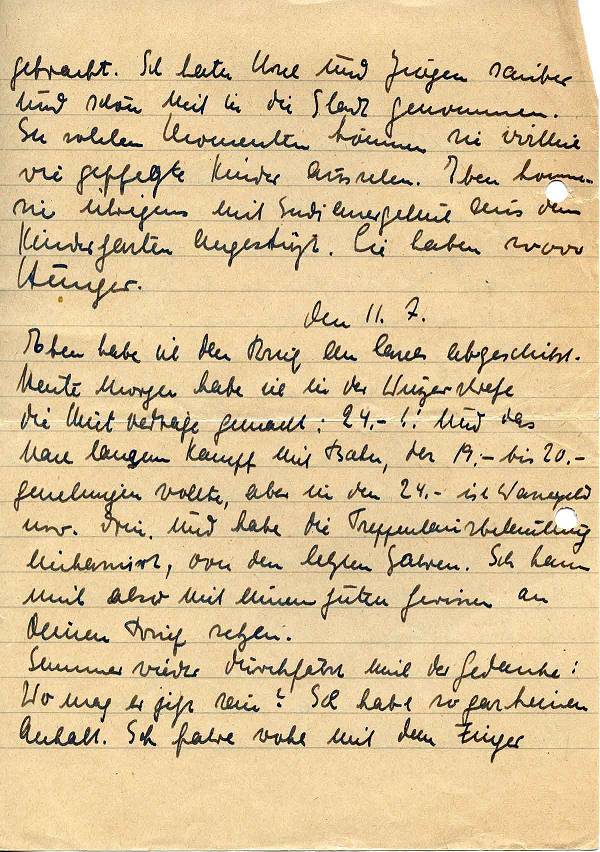 gebracht. Ich hatte Use und Jürgen sauber
und schön mit in die Stadt genommen.
In solchen Momenten können sie wirklich
wie gepflegte Kinder aussehen. Eben kommen
sie übrigens mit Indianergeheul aus dem
Kindergarten angestürzt. Sie haben soooo
Hunger.
den 11. 7.
Eben habe ich den Brief an abgeschickt.
Heute Morgen habe ich in der Winzerstraße
die Mietverträge gemacht: 24,- ! Und das
nach langem Kampf mit, der 19,- bis 20,-
genehmigen wollte, aber in den 24,- ist Wassergeld
usw. drin. Und habe die Treppenhausbeleuchtung
einkassiert, von den letzten Jahren. Ich kann
mich also mit einem guten Gewissen an
Deinen Brief setzen.
Immer wieder durchfährt mich der Gedanke:
Wo mag er jetzt sein? Ich habe so gar keinen
Anhalt. Ich fahre wohl mit dem Finger